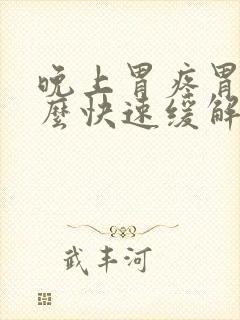 晚上胃疼胃
麼快速缓解
武丰河